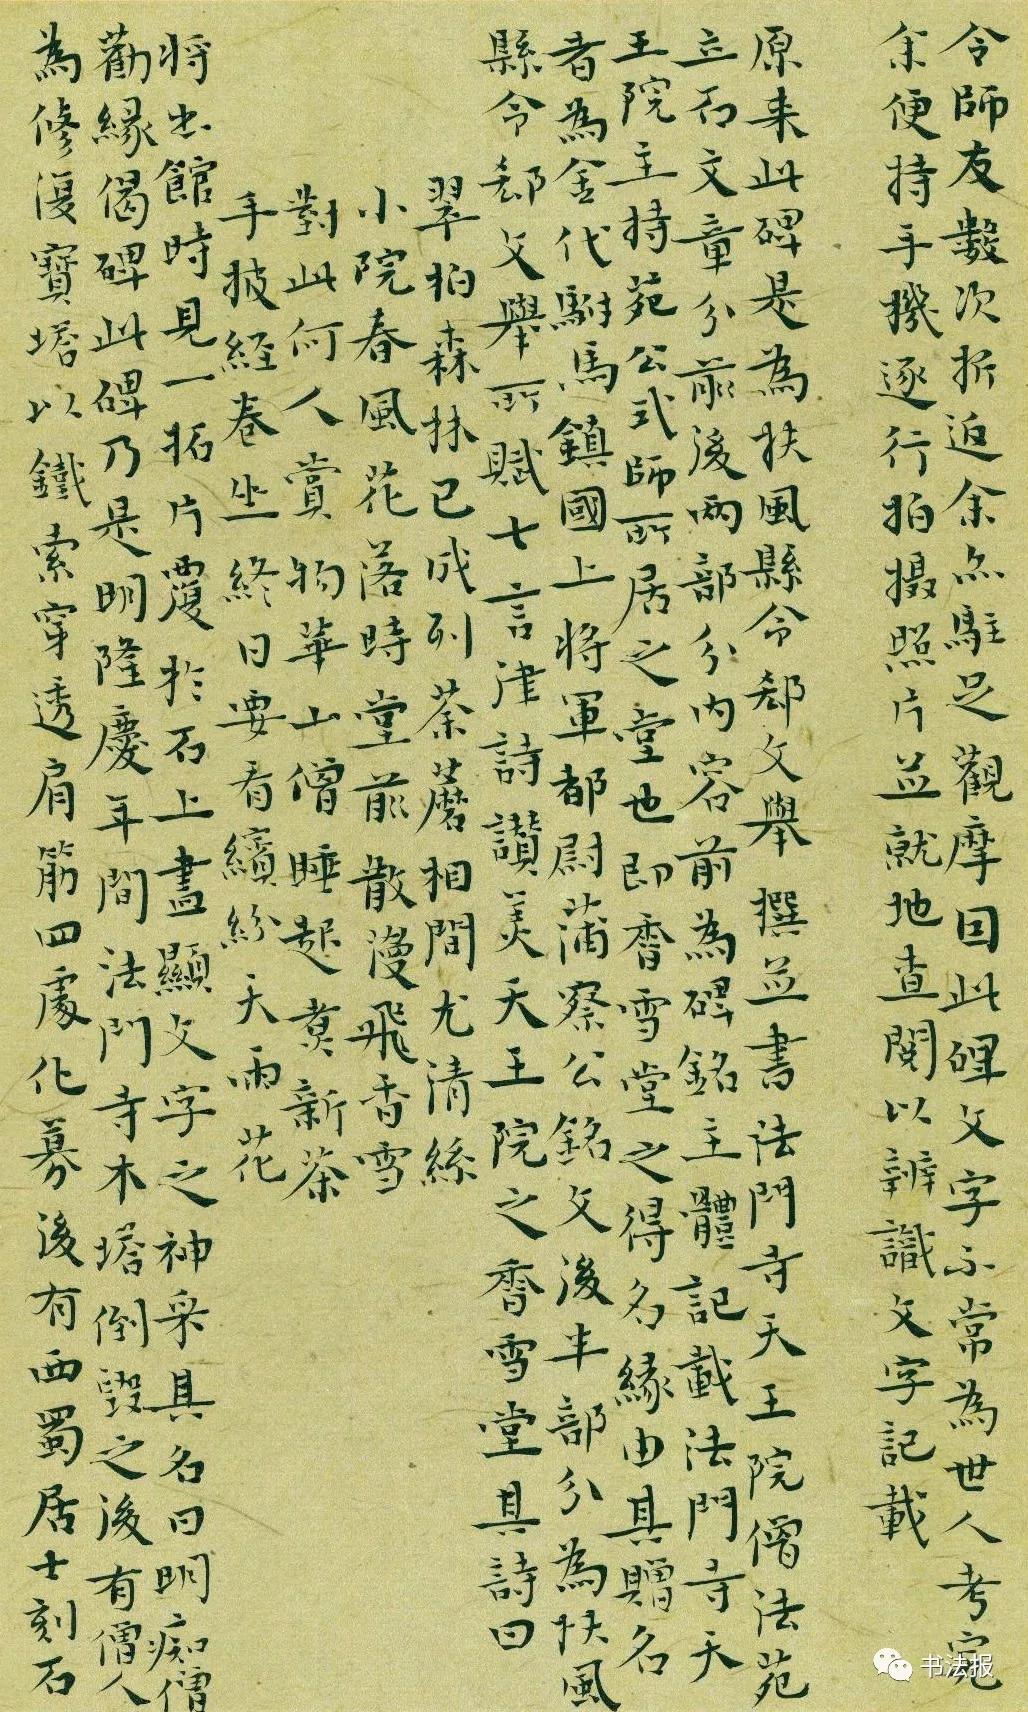 令師友數次折返余亦駐足觀摩因此碑文字不常為世人考究
余便持手機逐行拍攝照片並就地查閱以辨識文字記載
原来此碑是為扶風縣令郄文舉撰並書法門寺天王院僧法苑
立石文章分前後兩部分内容前為碑銘主體記載法門寺天
王院主持苑公式師所居之堂也即香雪堂之得名緣由具贈名
者為金代駙馬鎮國上將軍都尉蒲察公銘文後半部分為扶風
縣令郄文舉所賦七言津詩讚美天王院之香雪堂其詩曰
翠柏森林已成列荼蘼相間尤清絲
小院春風花落時堂前散漫飛香雪
對此何人賞物華山僧睡起煑新茶
手披經卷坐終日要看繽紛天雨花
將出館時見一拓片覆於石上盡顯文字之神采具名曰明痴僧
勸緣偈碑此碑乃是明隆慶年間法門寺木塔倒毀之後有僧人
為修復寶塔以鐵索穿透肩筋四處化募後有西蜀居士刻石
书法报